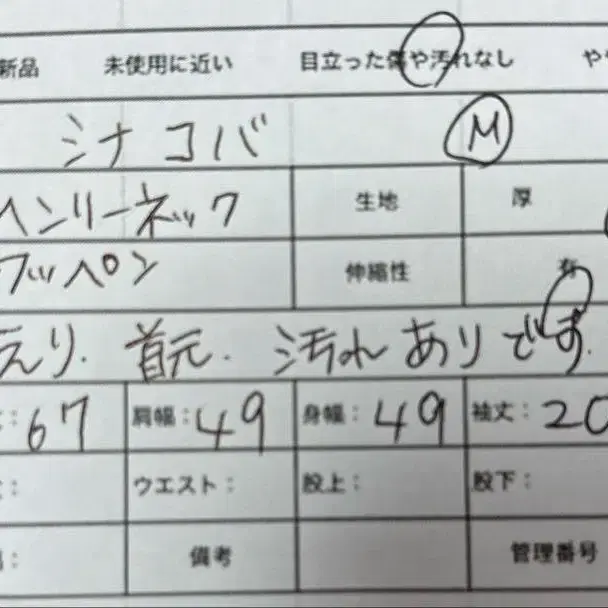 新品 未使用に近い 目立った傷や汚れなし やや
ミナコバ M
ヘンリーネック 生地 厚
ワッペン 伸縮性 有
えり. 首元. 汚れありです.
: 67 肩幅: 49 身幅: 49 袖丈: 20
: ウエスト: 股上: 股下:
: 備考 管理番号